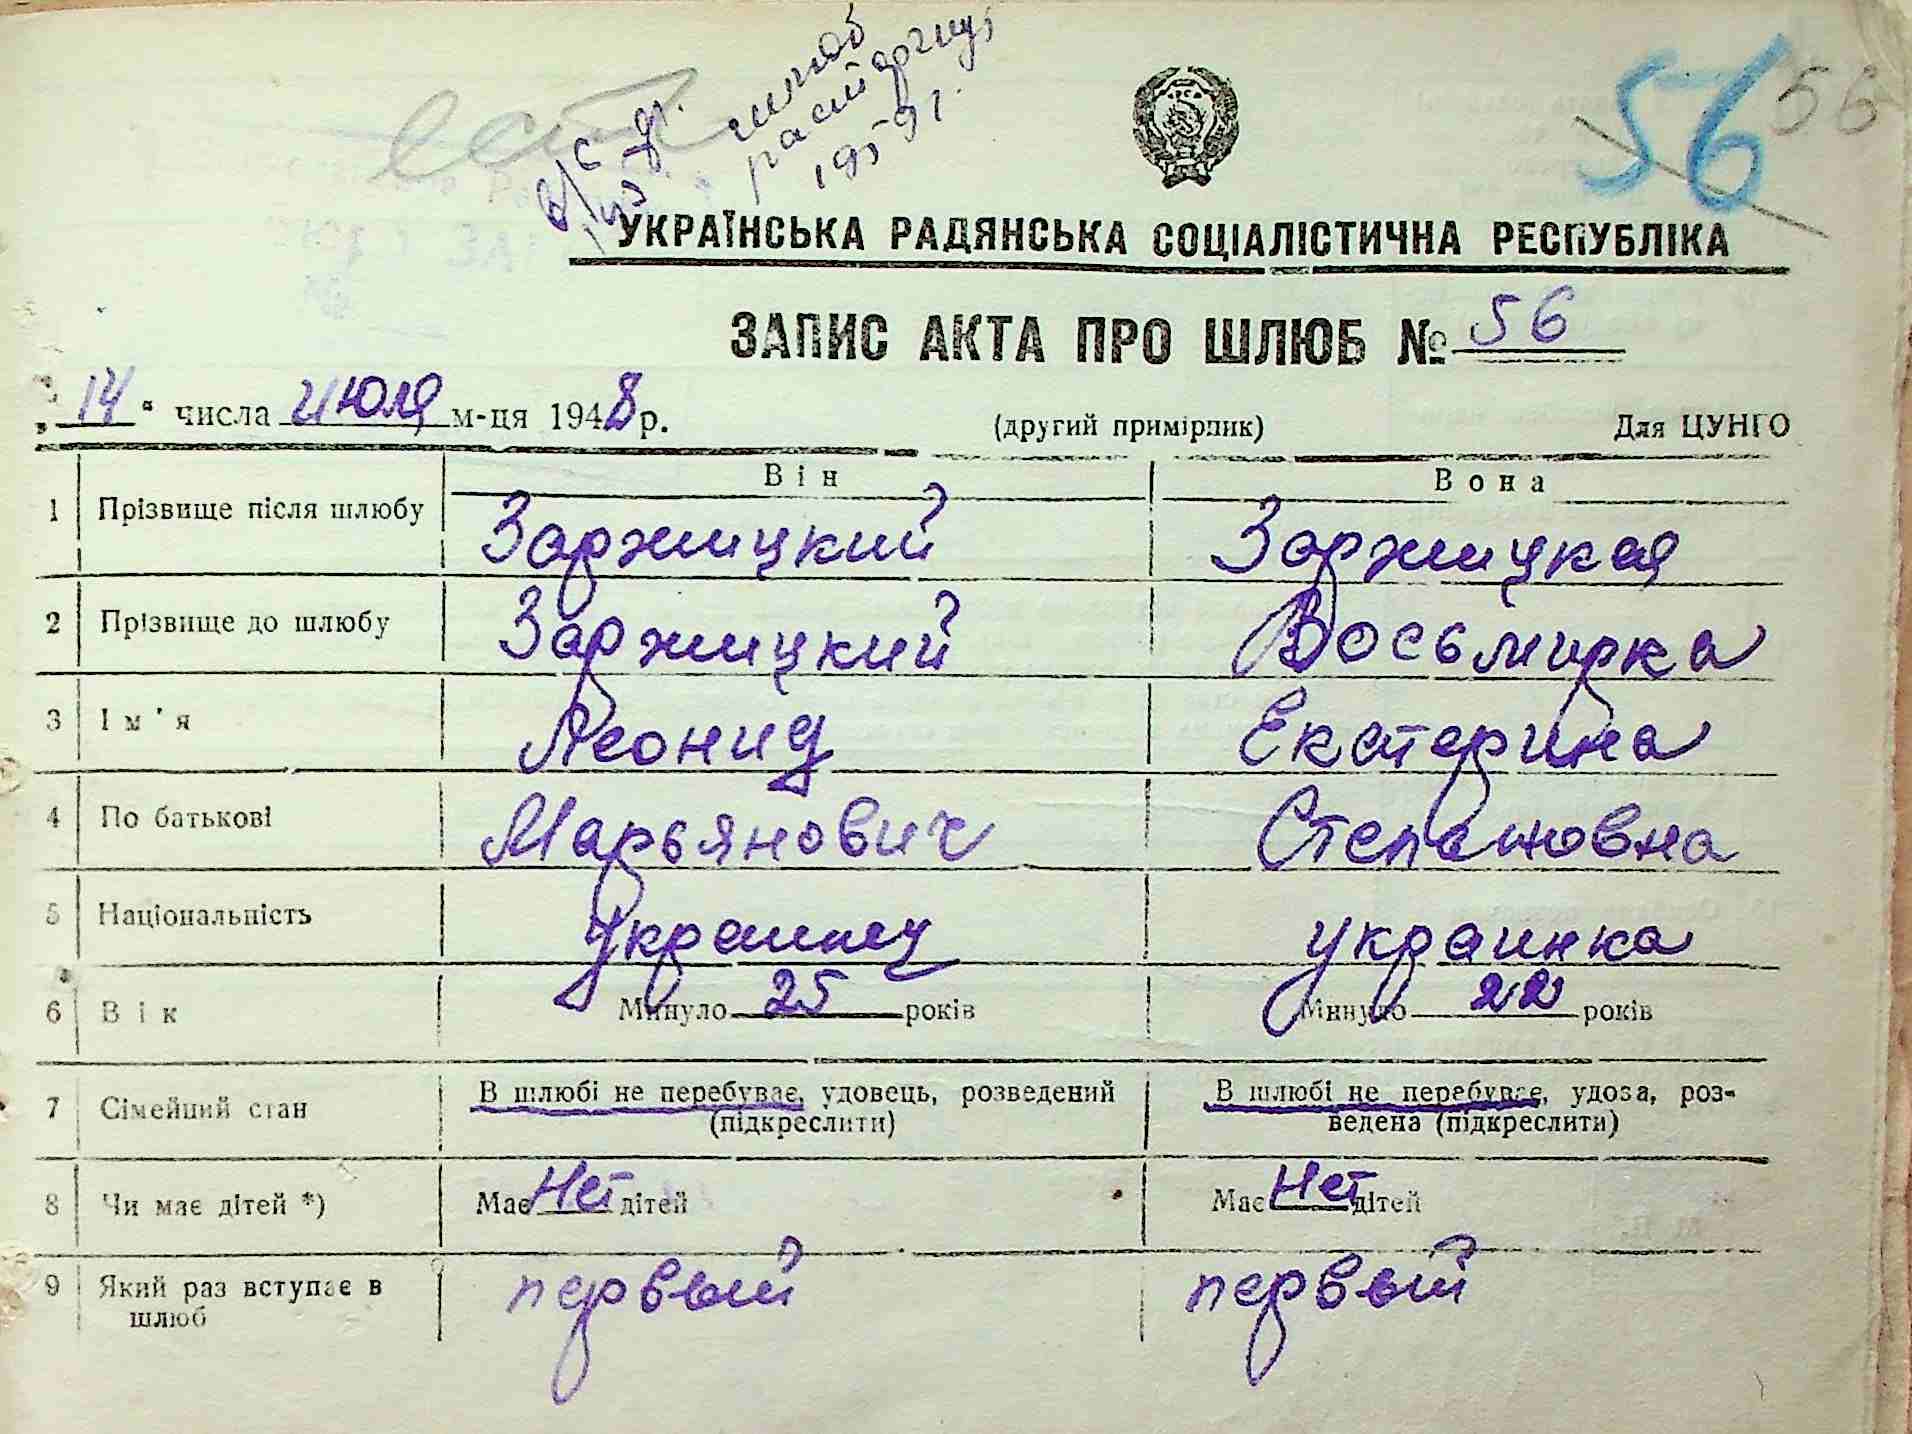 есть
шлюб
расторгнут
1959 г.
56
56
УКРАЇНСЬКА РАДЯНСЬКА СОЦІАЛІСТИЧНА РЕСПУБЛІКА
ЗАПИС АКТА ПРО ШЛЮБ № 56
„14" числа июля м-ця 1948 р. (другий примірник) Для ЦУНГО
Він Вона
1 Прізвище після шлюбу Заржицкий Заржицкая
2 Прізвище до шлюбу Заржицкий Восьмирка
3 Ім'я Леонид Екатерина
4 По батькові Марьянович Степановна
5 Національність Украинец украинка
6 Вік Минуло 25 років Минуло 22 років
7 Сімейний стан В шлюбі не перебуває, удовець, розведений (підкреслити) В шлюбі не перебуває, удова, роз-
ведена (підкреслити)
8 Чи має дітей *) Має Нет дітей Має Нет дітей
9 Який раз вступає в шлюб первый первый